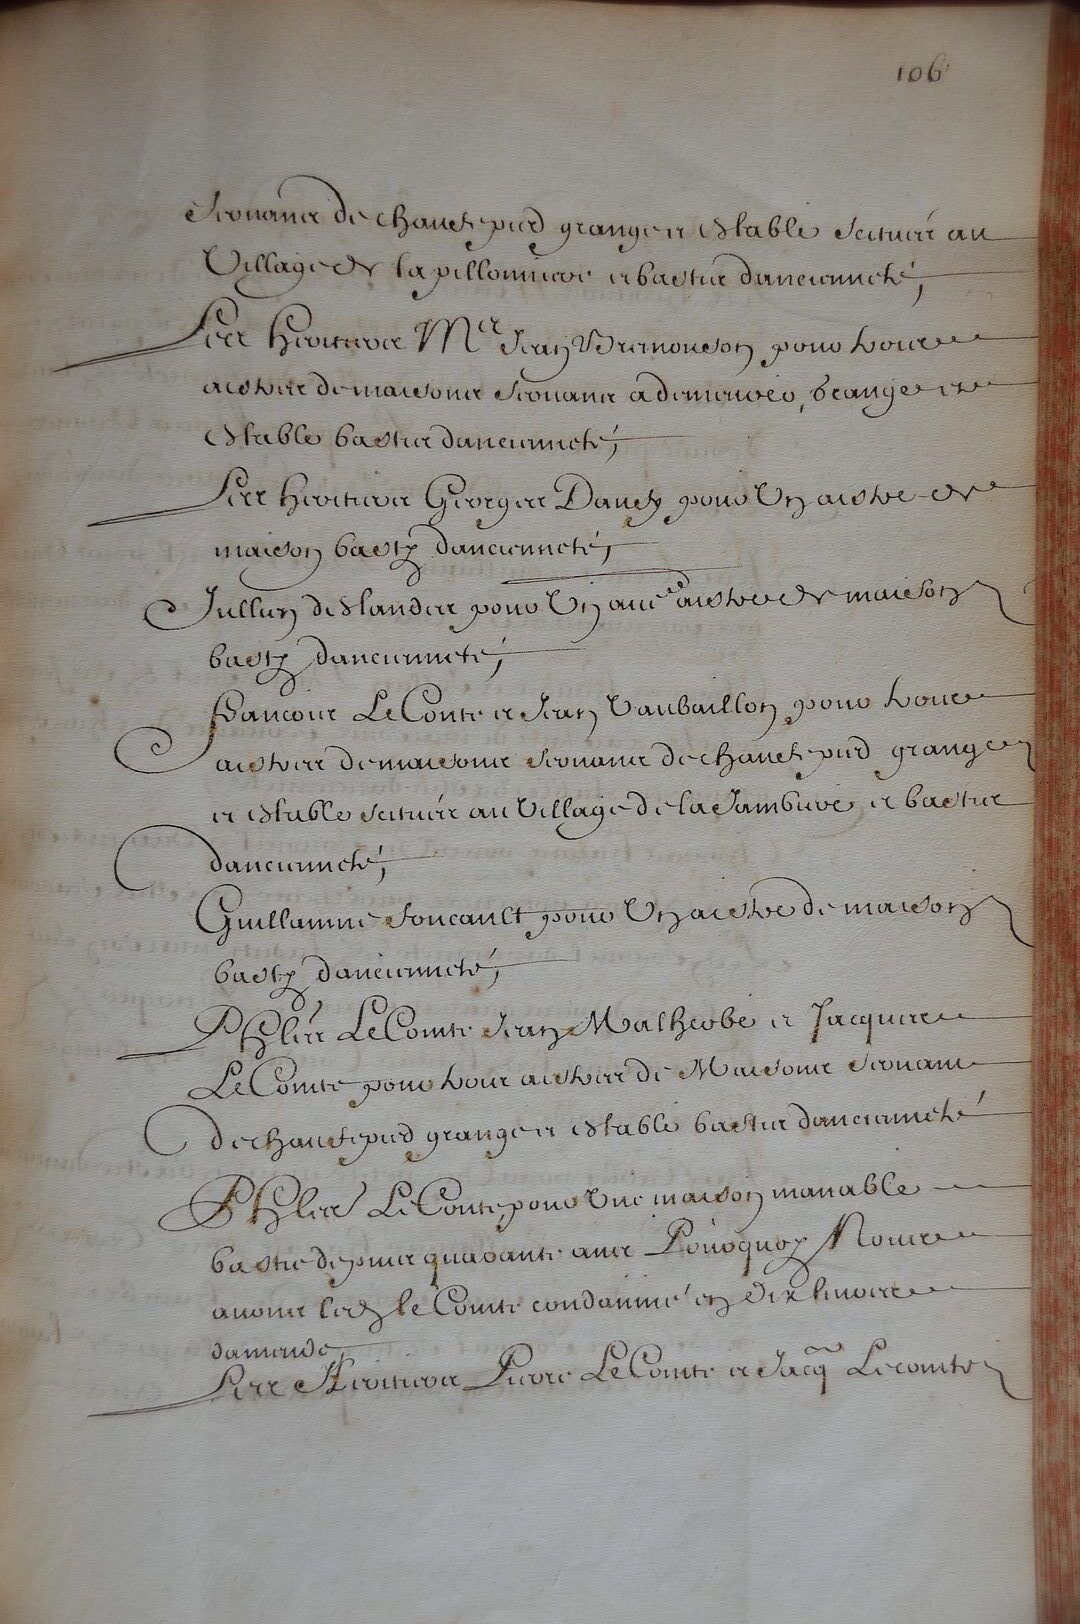 106
servans de chauf pied grange et estable scituées au
Village de la pillonniere et bastis dancienneté,
Les Heritiers Mre Jean Bremonson pour trois
aistres de maisons servans a demeurer, grange et
estable bastis dancienneté,
Les heritiers Georges Daucy pour Un aistre de
maison basty dancienneté,
Jullien deslandes pour Un autre aistre de maison
basty dancienneté,
francois Le Conte et Jean Vaubaillon pour trois
aistres de maisons servans de chauf pied grange
et estable scituées au Village de la Jambiere et bastis
dancienneté,
Guillaume foucault pour Un aistre de maison
basty dancienneté,
Phles Le Comte Jean Malherbe et Jacques
Le Comte pour trois aistres de Maisons servans
de chauf pied grange et estable bastis dancienneté
Phles Le Conte, pour Une maison manable
bastie depuis quarante ans Pourquoy Nous
avons led le Comte condamné en dix livres
damende,
Les Heritiers Pierre Le Comte et Jacq Lecomte